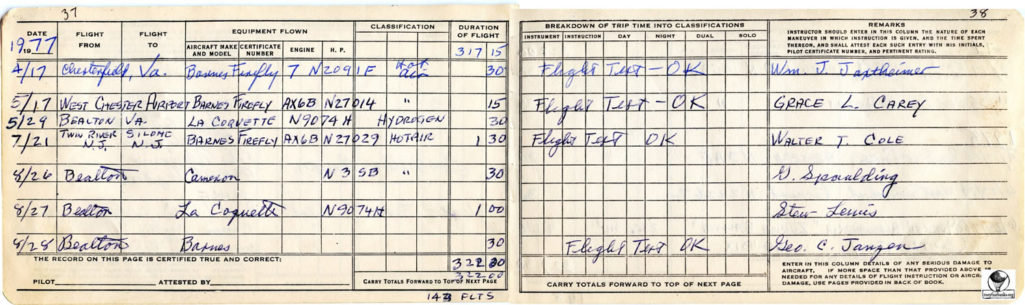 37
38
DATE
1977
FLIGHT FROM
FLIGHT TO
EQUIPMENT FLOWN
AIRCRAFT MAKE AND MODEL
CERTIFICATE NUMBER
ENGINE
H. P.
CLASSIFICATION
DURATION OF FLIGHT
317 15
BREAKDOWN OF TRIP TIME INTO CLASSIFICATIONS
INSTRUMENT INSTRUCTION DAY NIGHT DUAL SOLO
REMARKS
INSTRUCTOR SHOULD ENTER IN THIS COLUMN THE NATURE OF EACH
MANEUVER IN WHICH INSTRUCTION IS GIVEN, AND THE TIME SPENT
THEREON, AND SHALL ATTEST EACH SUCH ENTRY WITH HIS INITIALS,
PILOT CERTIFICATE NUMBER, AND PERTINENT RATING.
4/17 Chesterfield, Va. Barnes Firefly 7 N2091F Hot Air 30 Flight Test - OK Wm. J.
5/17 WEST CHESTER AIRPORT BARNES FIREFLY AX6B N27014 " 15 Flight Test - OK GRACE L. CAREY
5/29 BEALTON VA. LA COQUETTE N9074H HYDROGEN 30
7/21 TWIN RIVER N.J. SILOME N.J. BARNES FIREFLY AX6B N27029 HOTAIR 1 30 Flight Test OK WALTER T. COLE
8/26 Bealton Cameron N3SB " 30 G. Spaulding
8/27 Bealton La Coquette N9074H 1 00 Stew Lewis
8/28 Bealton Barnes 30 Flight Test OK Geo. C. Janzen
THE RECORD ON THIS PAGE IS CERTIFIED TRUE AND CORRECT:
322 00
PILOT ATTESTED BY
CARRY TOTALS FORWARD TO TOP OF NEXT PAGE
322.00
143 FLTS
CARRY TOTALS FORWARD TO TOP OF NEXT PAGE
ENTER IN THIS COLUMN DETAILS OF ANY SERIOUS DAMAGE TO
AIRCRAFT. IF MORE SPACE THAN THAT PROVIDED ABOVE IS
NEEDED FOR ANY DETAILS OF FLIGHT INSTRUCTION OR AIRCRAFT
DAMAGE, USE PAGES PROVIDED IN BACK OF BOOK.